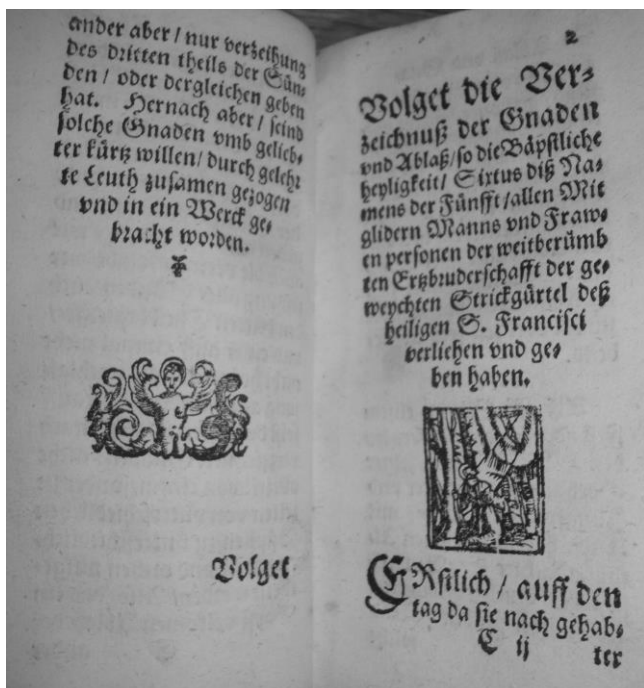 ander aber / nur verzeihung
des dritten theils der Sün⸗
den / oder dergleichen geben
hat. Hernach aber / seind
solche Gnaden vmb gelieb⸗
ter kürtz willen / durch gelehr
te Leuth zusamen gezogen
vnd in ein Werck ge⸗
bracht worden.
Volget
2
Volget die Ver⸗
zeichnuß der Gnaden
vnd Ablaß / so die Bäpstliche
heyligkeit / Sixtus diß Na⸗
mens der Fünfft / allen Mit
glidern Manns vnd Fraw⸗
en personen der weitberümb
ten Ertzbruderschafft der ge⸗
weychten Strickgürtel deß
heiligen S. Francisci
verlichen vnd ge⸗
ben haben.
ERstlich / auff den
tag da sie nach gehab⸗
C ij
ter